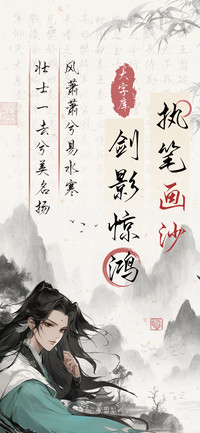 执笔画沙
剑影惊鸿
大字库
风萧萧兮易水寒
壮士一去兮美名扬